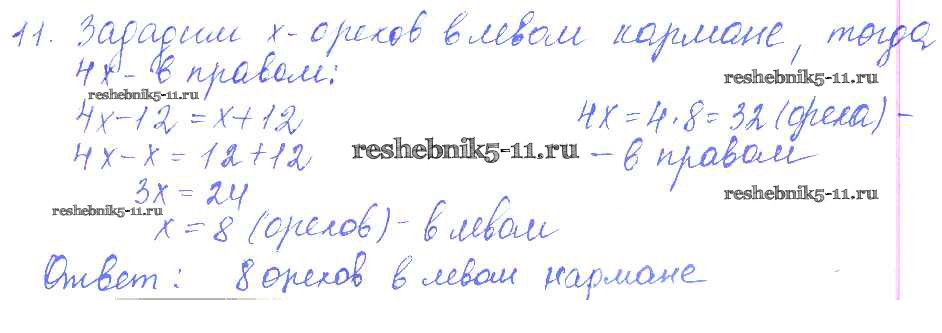 11. Зададим x - орехов в левом кармане, тогда
4x - в правом:
reshebnik5-11.ru
reshebnik5-11.ru
4x - 12 = x + 12
4x = 4 · 8 = 32 (ореха) -
4x - x = 12 + 12
reshebnik5-11.ru
- в правом
3x = 24
reshebnik5-11.ru
reshebnik5-11.ru
x = 8 (орехов) - в левом
Ответ: 8 орехов в левом кармане